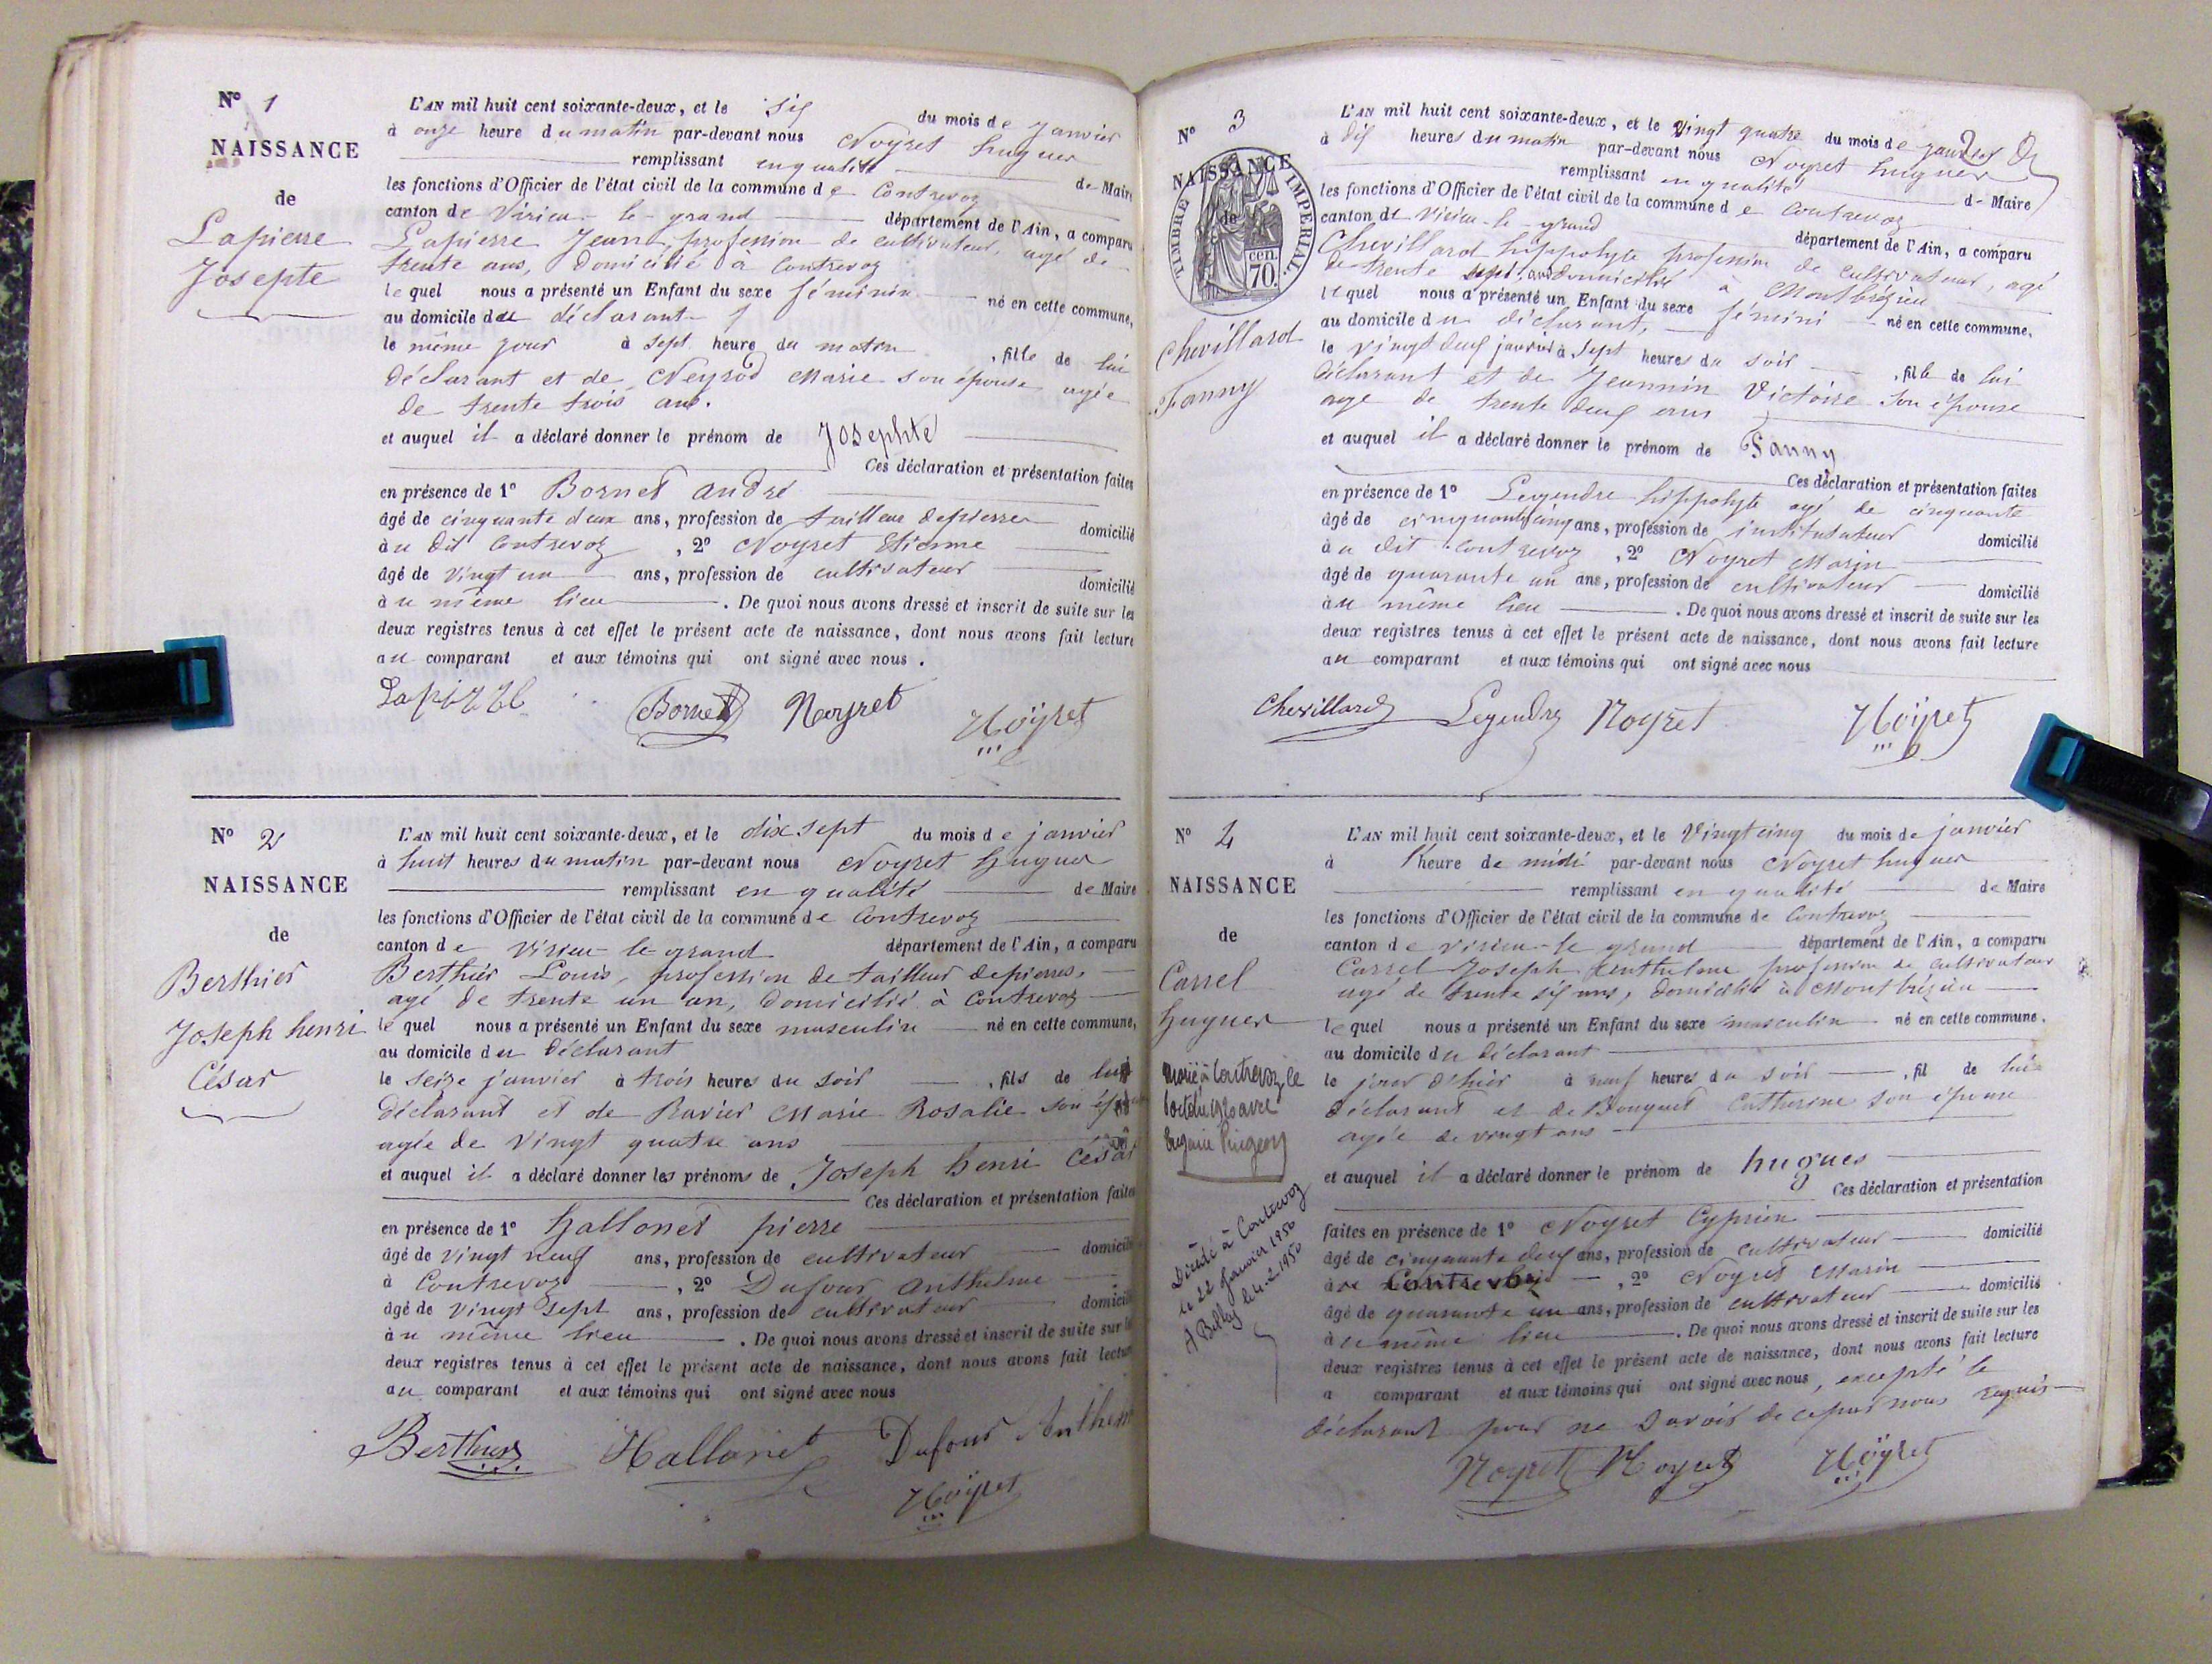 N° 1
NAISSANCE
de
Lapierre
Josepte
L'AN mil huit cent soixante-deux, et le six du mois de janvier
à onze heure du matin par-devant nous Noyret hugues
remplissant en qualité de Maire
les fonctions d'Officier de l'état civil de la commune de Contrevoz
canton de Virieu-le-grand département de l'Ain, a comparu
Lapierre Jean, profession de cultivateur, agé de
trente ans, domicilié à Contrevoz
le quel nous a présenté un Enfant du sexe féminin né en cette commune,
au domicile du déclarant
le même jour à sept heure du matin, fille de lui
déclarant et de Neyrod Marie son épouse agée
de trente trois ans.
et auquel il a déclaré donner le prénom de Josephte
Ces déclaration et présentation faites
en présence de 1° Bornet andré
âgé de cinquante deux ans, profession de tailleur depierre domicilié
àu dit Contrevoz, 2° Noyret Etienne
âgé de vingt un ans, profession de cultivateur domicilié
àu même lieu. De quoi nous avons dressé et inscrit de suite sur les
deux registres tenus à cet effet le présent acte de naissance, dont nous avons fait lecture
au comparant et aux témoins qui ont signé avec nous.
Bornet Noyret Noÿret
N° 2
NAISSANCE
de
Berthier
Joseph henri
César
L'AN mil huit cent soixante-deux, et le dix sept du mois de janvier
à huit heures du matin par-devant nous Noyret hugues
remplissant en qualité de Maire
les fonctions d'Officier de l'état civil de la commune de Contrevoz
canton de Virieu-le-grand département de l'Ain, a comparu
Berthier Louis, profession de tailleur depierres,
agé de trente un an, domicilié à Contrevoz
le quel nous a présenté un Enfant du sexe masculin né en cette commune,
au domicile du déclarant
le seize janvier à trois heures du soir, fils de lui
déclarant et de Ravier Marie Rosalie son
agée de vingt quatre ans
et auquel il a déclaré donner les prénoms de Joseph henri César
Ces déclaration et présentation faites
en présence de 1° hallonet pierre
âgé de vingt neuf ans, profession de cultivateur domicilié
à Contrevoz, 2° Dufour anthelme
âgé de vingt sept ans, profession de cultivateur domicilié
àu même lieu. De quoi nous avons dressé et inscrit de suite sur
deux registres tenus à cet effet le présent acte de naissance, dont nous avons fait lecture
au comparant et aux témoins qui ont signé avec nous
Berthier Hallonet Dufour Anthelme
Noÿret
N° 3
NAISSANCE
de
TIMBRE IMPERIAL.
cen.
70.
Chevillard
Fanny
L'AN mil huit cent soixante-deux, et le vingt quatre du mois de janvier
à dix heures du matin par-devant nous Noyret hugues
remplissant en qualité de Maire
les fonctions d'Officier de l'état civil de la commune de Contrevoz
canton de Virieu-le-grand département de l'Ain, a comparu
Chevillard hippolyte profession de cultivateur, agé
de trente sept ans domicilié à Montbrézieu
le quel nous a présenté un Enfant du sexe fémini né en cette commune.
au domicile du déclarant,
le vingt deux janvier à sept heures du soir, fille de lui
déclarant et de Jeannin Victoire son épouse
age de trente deux ans
et auquel il a déclaré donner le prénom de Fanny
Ces déclaration et présentation faites
en présence de 1° Legendre hippolyte agé de cinquante
âgé de cinquante cinq ans, profession de institutateur domicilié
àu dit Contrevoz, 2° Noyret Marin
âgé de quarante un ans, profession de cultivateur domicilié
àu même lieu. De quoi nous avons dressé et inscrit de suite sur les
deux registres tenus à cet effet le présent acte de naissance, dont nous avons fait lecture
au comparant et aux témoins qui ont signé avec nous
Chevillard Legendre Noyret Noÿret
N° 4
NAISSANCE
de
Carrel
hugues
Marié à Contrevoz le
avec
Eugénie Pingeon
Décédé à Contrevoz
le 22 Janvier 1950
A Belley le 4.2.1950
L'AN mil huit cent soixante-deux, et le Vingt cinq du mois de janvier
à l'heure de midi par-devant nous Noyret hugues
remplissant en qualité de Maire
les fonctions d'Officier de l'état civil de la commune de Contrevoz
canton de virieu-le grand département de l'Ain, a comparu
Carrel Joseph anthelme profession de cultivateur
agé de trente six ans, domicilié à Montbrézieu
le quel nous a présenté un Enfant du sexe masculin né en cette commune.
au domicile du déclarant
le jour d'hier à neuf heures du soir, fil de lui
déclarant et de Bouquet Catherine son épouse
agée de vingt ans
et auquel il a déclaré donner le prénom de hugues
Ces déclaration et présentation
faites en présence de 1° Noyret Cyprien
âgé de cinquante deux ans, profession de cultivateur domicilié
àu Contrevoz, 2° Noyret Marin
âgé de quarante un ans, profession de cultivateur domicilié
àu même lieu. De quoi nous avons dressé et inscrit de suite sur les
deux registres tenus à cet effet le présent acte de naissance, dont nous avons fait lecture
a comparant et aux témoins qui ont signé avec nous, excepté le
déclarant pour ne savoir de ce par nous requis
Noyret Noyret Noÿret